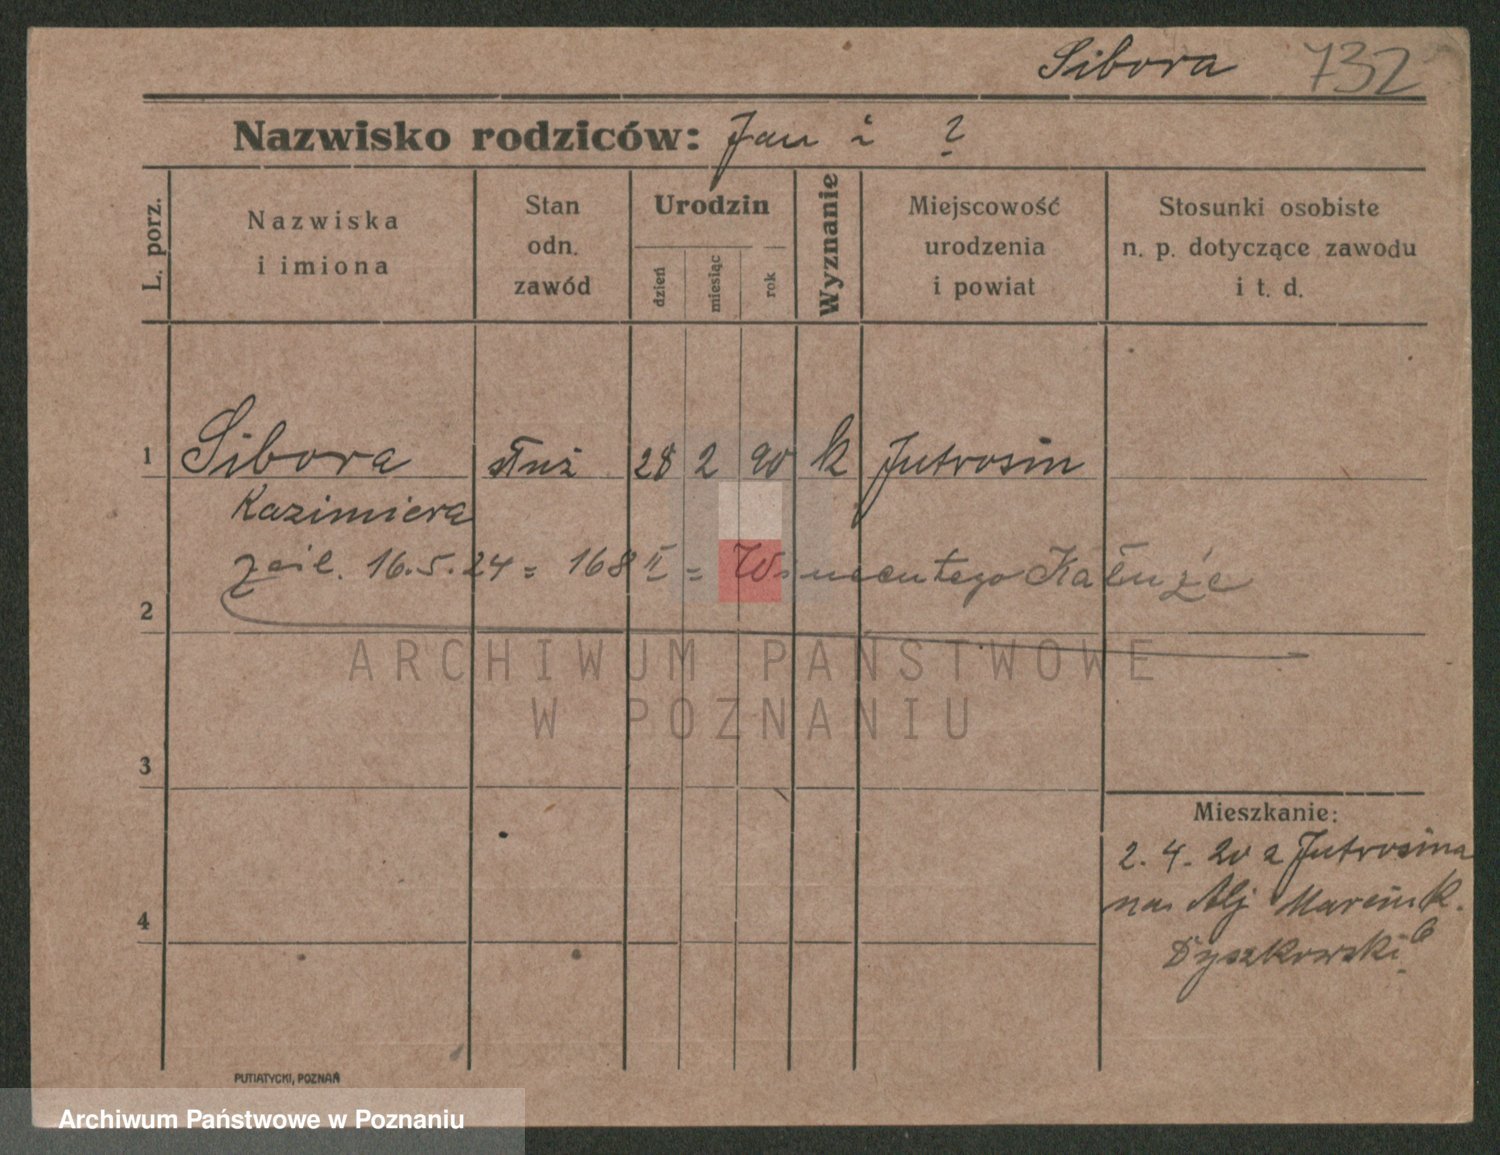 Sibora 732
Nazwisko rodziców: Jan i ?
L. porz.
Nazwiska
i imiona
Stan
odn.
zawód
Urodzin
dzień
miesiąc
rok
Wyznanie
Miejscowość
urodzenia
i powiat
Stosunki osobiste
n. p. dotyczące zawodu
i t. d.
1 Sibora służ 28 2 90 k Jutrosin
Kazimiera
16.5.24 = 168 II = Kałuże
2
ARCHIWUM PAŃSTWOWE
W POZNANIU
3
Mieszkanie:
2. 4. 20 z Jutrosina
na Alj Marcink. 6
Dyszkowski
4
PUTIATYCKI, POZNAŃ
Archiwum Państwowe w Poznaniu